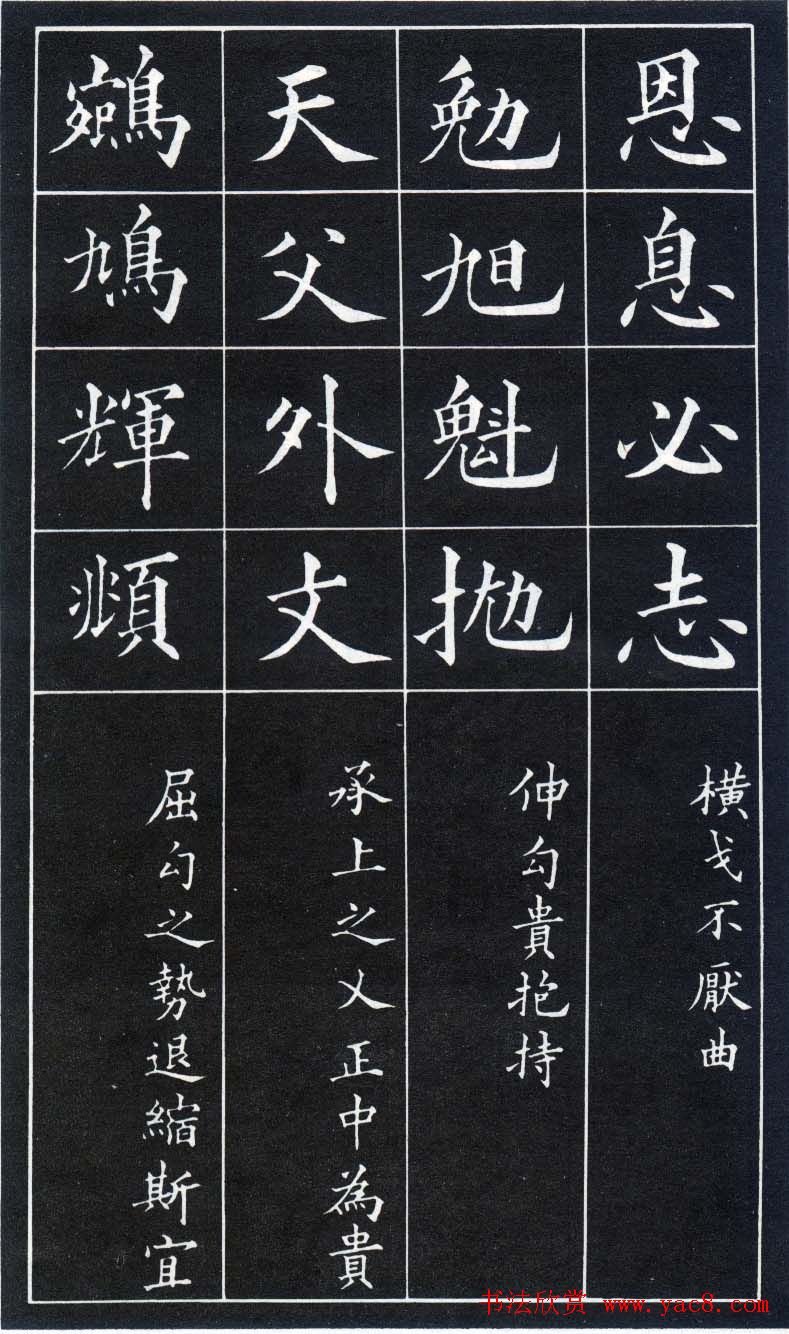 恩息必志
横戈不厭曲
勉旭魁抛
伸勾貴抱持
天父外文
承上之乂正中為貴
鳩輝頫
屈勾之勢退縮斯宜
书法欣赏 www.yac8.com